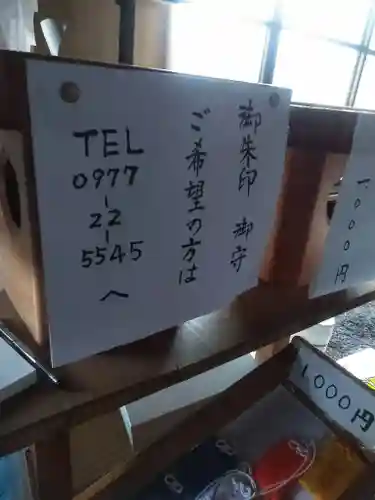 御朱印 御守
ご希望の方は
TEL
0977
-
22
-
5545
へ
1000円
1,000円